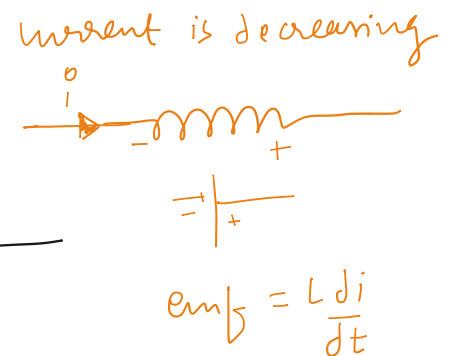 current is decreasing
i
- +
- +
emf = L di/dt